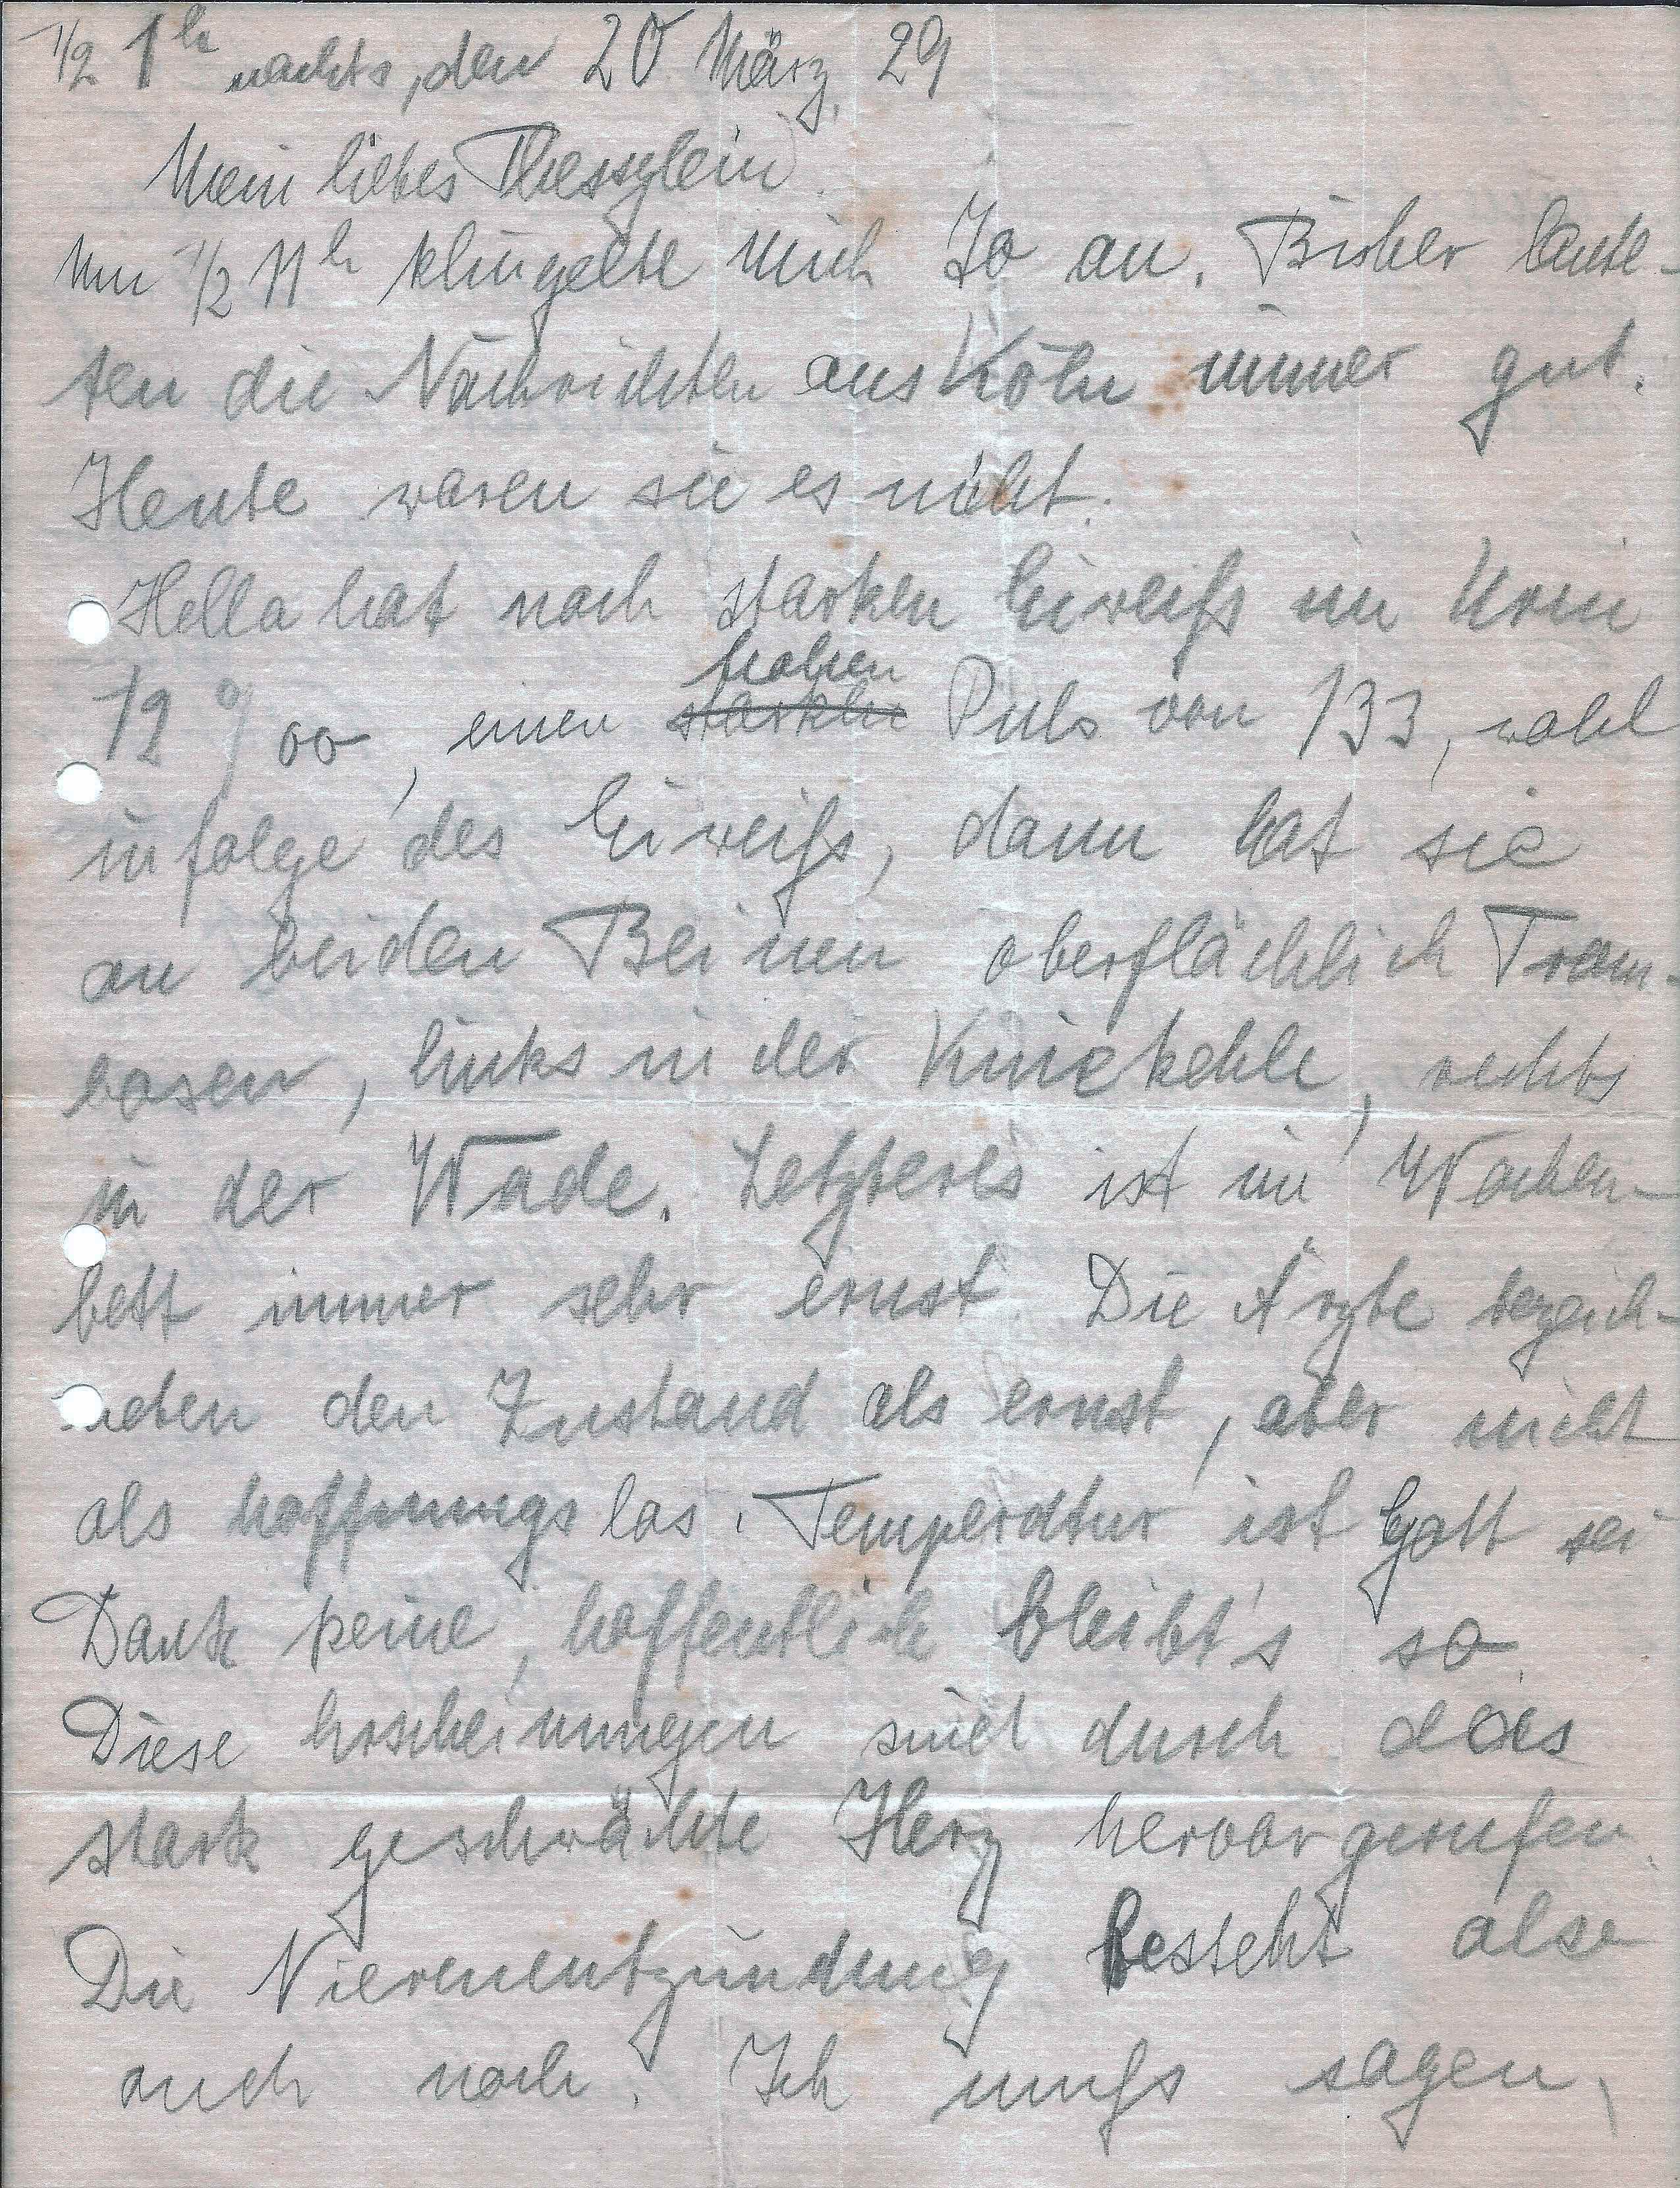 1/2 1h nachts, den 20 März, 29
Mein liebes Thesslein.
Um 1/2 11h klingelte mich Jo an. Bisher laute-
ten die Nachrichten aus Köln immer gut.
Heute waren sie es nicht.
Hella hat noch starken Eiweiß im Urin
12 0/00, einen hohen starken Puls von 133, wohl
infolge des Eiweiß, dann hat sie
an beiden Beinen oberflächlich Trom-
bosen, links in der Kniekehle, rechts
in der Wade. Letzteres ist im Wochen-
bett immer sehr ernst. Die Ärzte bezeich-
neten den Zustand als ernst, aber nicht
als hoffnungslos. Temperatur ist Gott sei
Dank keine, hoffentlich bleibt's so.
Diese Erscheinungen sind durch das
stark geschwächte Herz hervorgerufen.
Die Nierenentzündung besteht also
auch noch. Ich muß sagen,